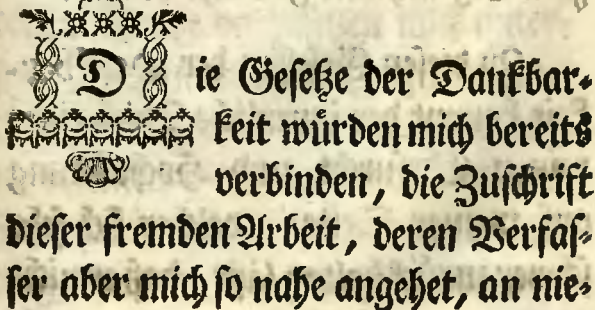 Die Geſetze der Dankbar-
keit würden mich bereits
verbinden, die Zuſchrift
dieſer fremden Arbeit, deren Verfaſ-
ſer aber mich ſo nahe angehet, an nie-